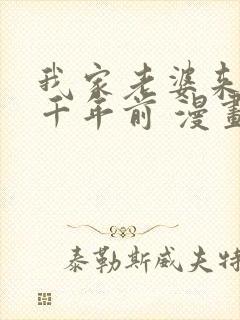 我家老婆来
千年前 漫畫
泰勒斯威夫特